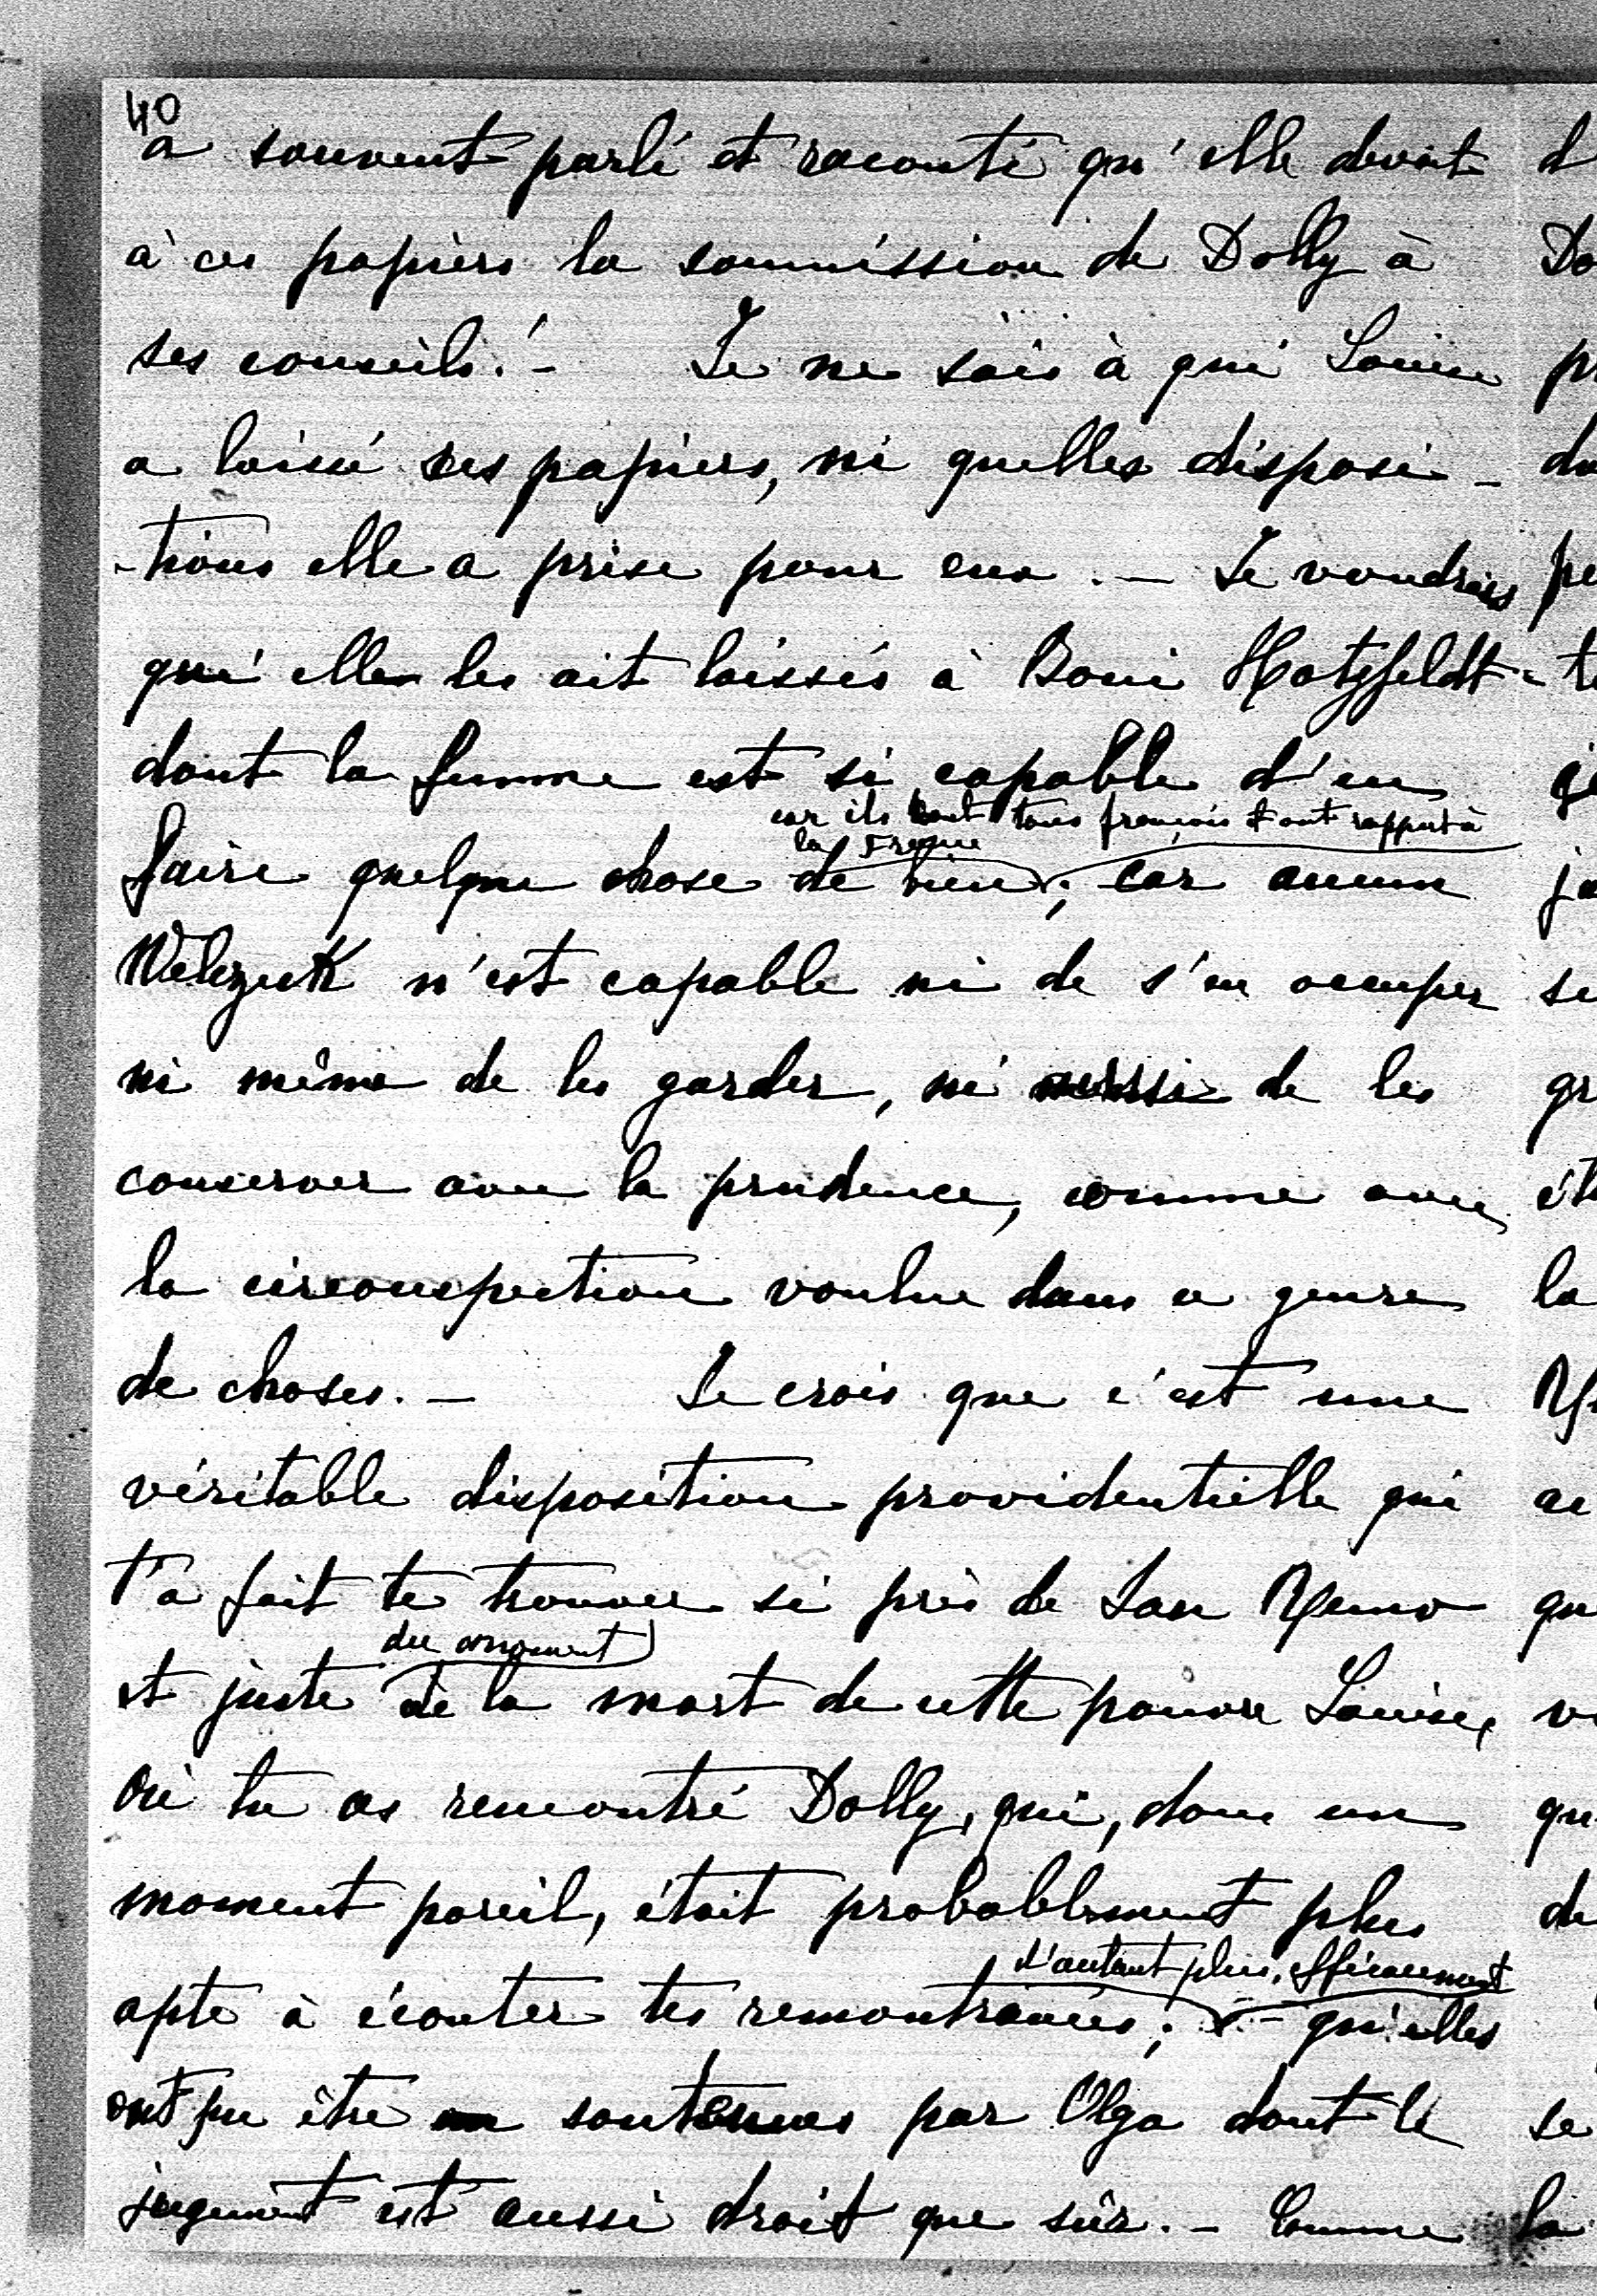 40
a souvent parlé et raconté qu'elle devait
à ces papiers la soumission de Dolly à
ses conseils! - Je ne sais à qui Louise
a laissé ses papiers, ni quelles disposi-
-tions elle a prise pour eux. - Je voudrais
qu'elle les ait laissés à Boni Hatzfeldt -
dont la femme est si capable d'en
car ils sont tous français & ont rapport à
la France
faire quelque chose de bien; car aucun
Welczeck n'est capable ni de s'en occuper
ni même de les garder, ni aussi de les
conserver avec la prudence, comme avec
la circonspection voulue dans ce genre
de choses. - Je crois que c'est une
véritable disposition providentielle qui
t'a fait te trouver si près de San Remo
du moment
et juste de la mort de cette pauvre Louise,
où tu as rencontré Dolly, qui, dans un
moment pareil, était probablement plus
d'autant plus efficacement
apte à écouter tes remontrances; - qu'elles
ont pu être soutenues par Olga dont le
jugement est aussi droit que sûr. - Comme
d
Do
pr
du
pe
te
qe
ja
se
gr
ét
la
ce
qu
v
qu
de
se
la